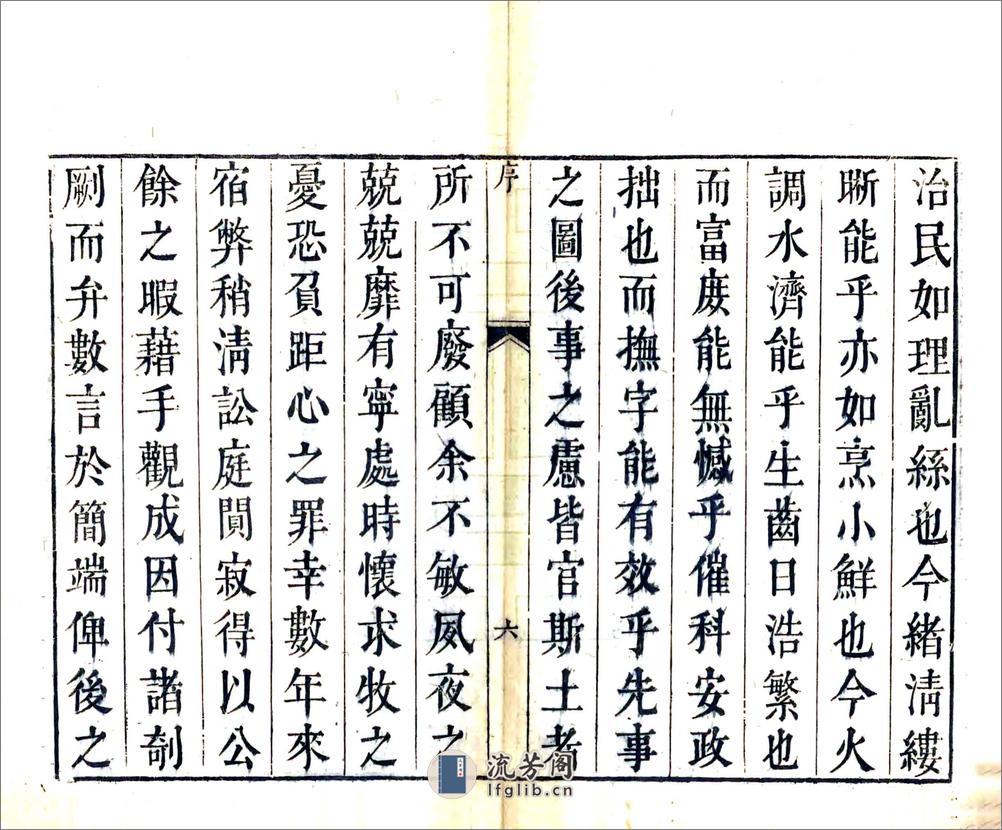 治民如理亂絲也今緒淸縷
晣能乎亦如烹小鮮也今火
調水濟能乎生齒日浩繁也
而富庶能無憾乎催科安政
拙也而撫字能有效乎先事
之圖後事之慮皆官斯土者
序
六
所不可廢顧余不敏夙夜之
兢兢靡有寧處時懷求牧之
憂恐負距心之罪幸數年來
宿弊稍淸訟庭閴寂得以公
餘之暇藉手觀成因付諸剞
劂而弁數言於簡端俾後之
流芳阁
lfglib.cn